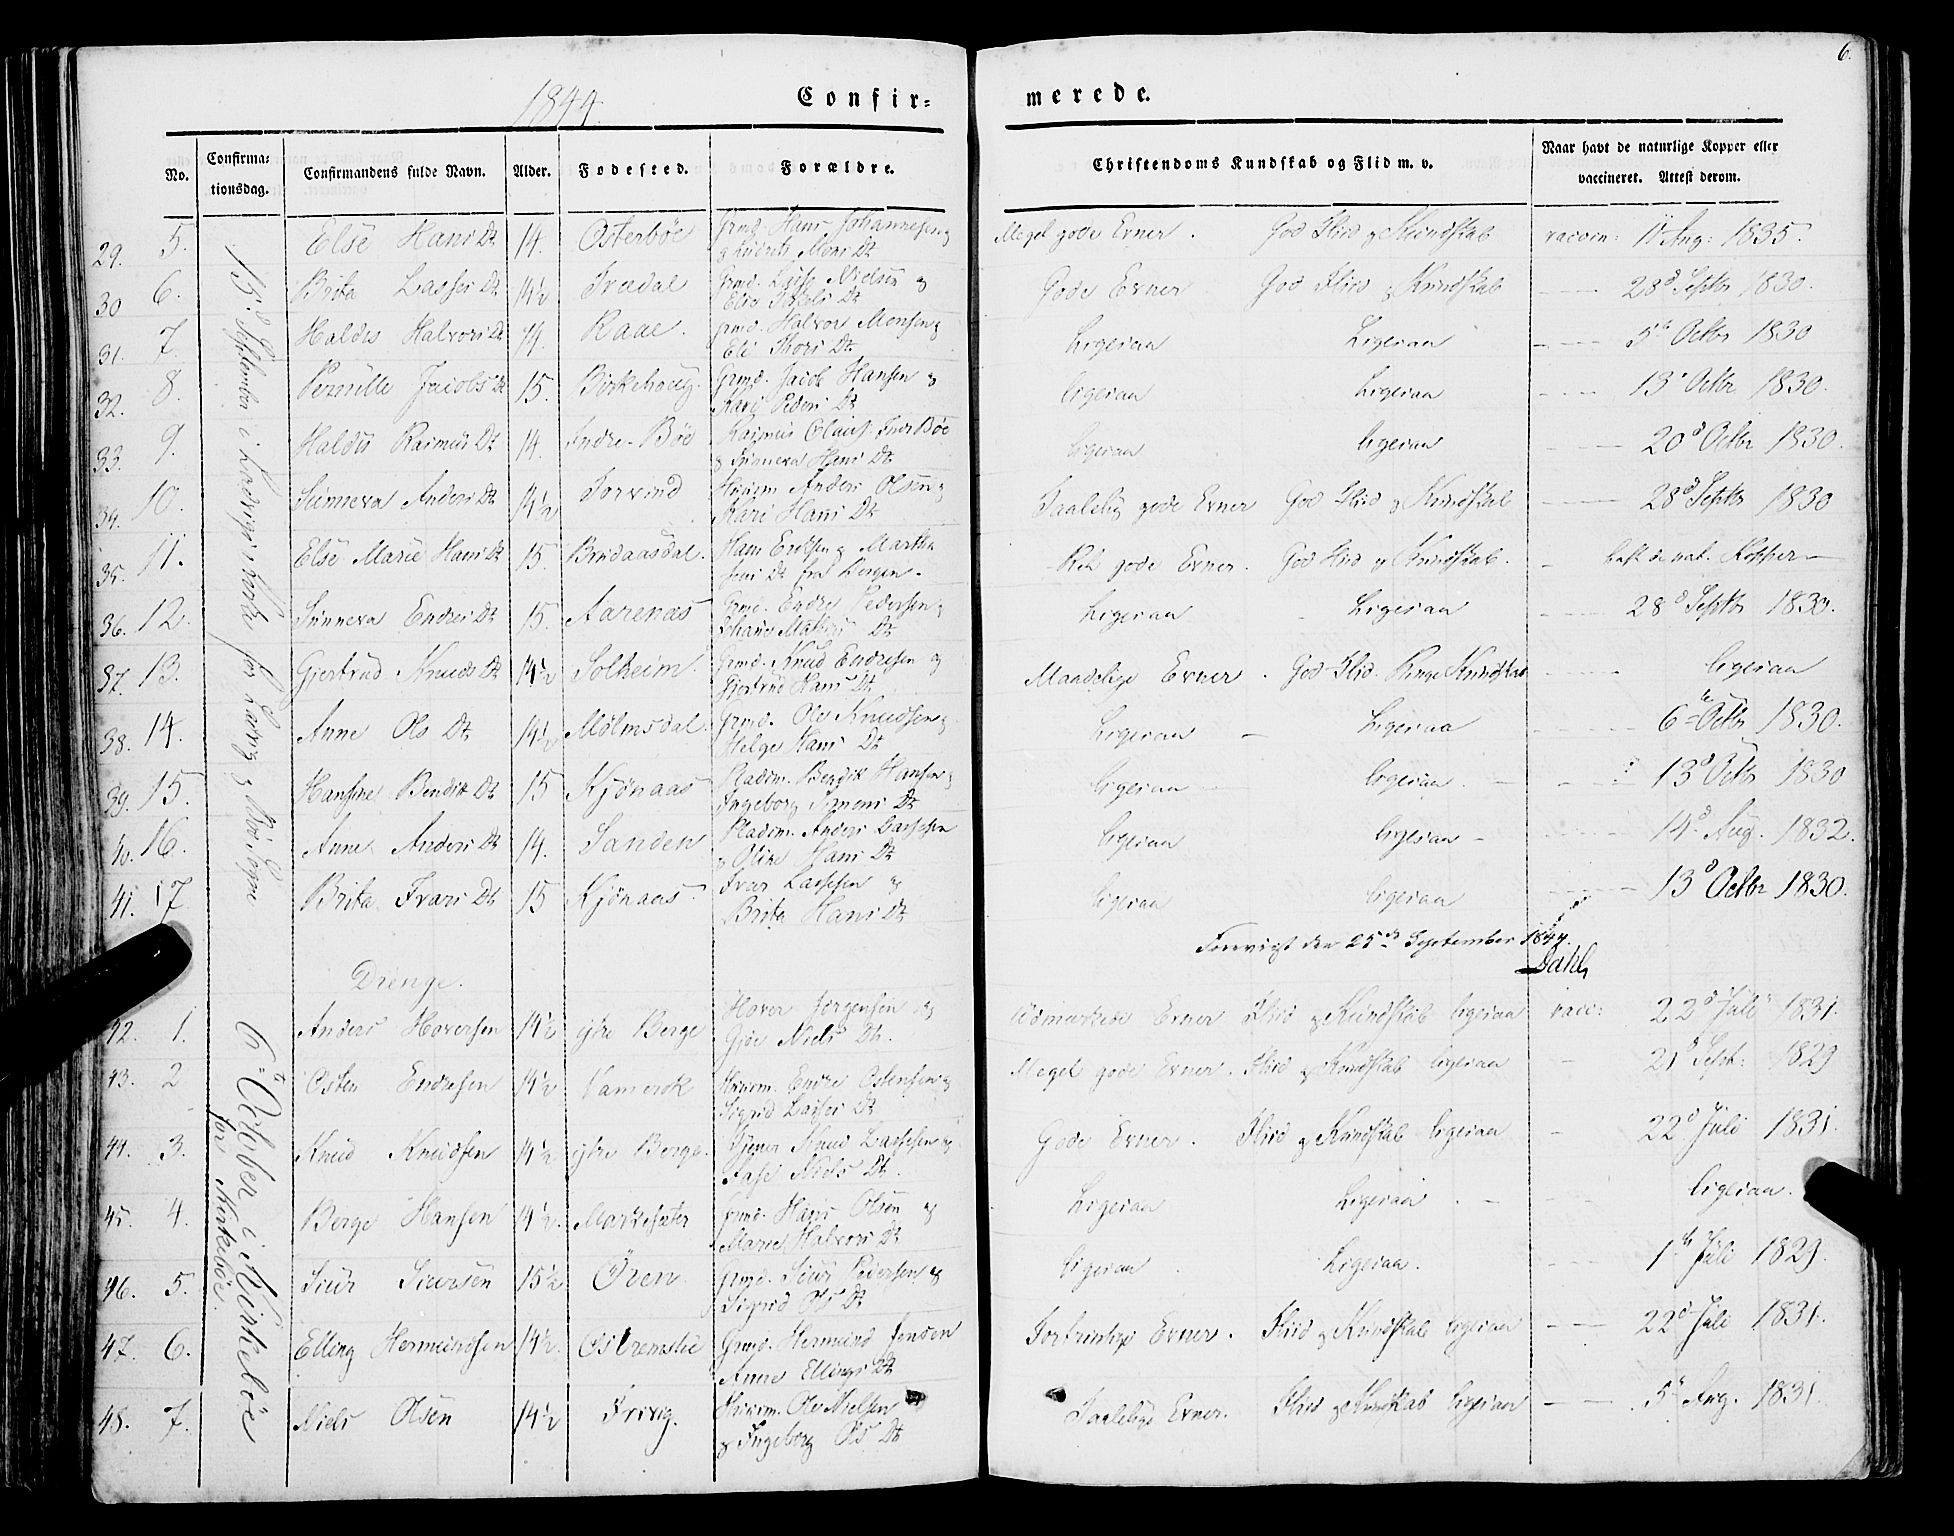 6.
1844.
Confir=
merede.
No.
Confirma=
tionsdag.
Confirmandens fulde Navn.
Alder.
Fodested.
Forældre.
Christendoms Kundskab og Flid m. v.
Naar havt de naturlige Kopper eller
vaccineret. Attest derom.
15d September i Ladvigs Kirke for Ladvig og Bøe Sogne
29. 5. Else Hans Dt 14. Osterbøe Grmd. Hans Johannesen Mons Dt Meget gode Evner. God Flid og Kundskab 11 Aug: 1835.
30 6. Brita Lasses Dt 14½ Grmd. Lasse Nielsen og Dt Gode Evner God Flid og Kundskab 28d Septbr 1830.
31. 7. Haldis Halvors Dt 14. Raae. Grmd. Halvor Monsen og Eli Thors Dt Ligesaa Ligesaa 5te Octbr 1830
32. 8. Pernille Jacobs Dt 15. Birkehoug. Grmd. Jacob Hansen og Kari Peders Dt ligesaa Ligesaa 13d Octbr 1830.
33. 9. Haldis Rasmus Dt 14. Indre-Bøe Rasmus Olaus. Indr Bøe og Sunneva Hans Dt ligesaa ligesaa 20d Octbr 1830.
34. 10. Sunneva Anders Dt 14½ Torvund Huusm Anders Olsen og Kari Hans Dt Taalelig gode Evner God Flid og Kundskab 28d Septbr 1830
35. 11. Else Marie Hans Dt 15. Hans Eriksen og Martha Dt fra Bergen. gode Evner. God Flid og Kundskab. havt de nat. Kopper
36. 12. Sunneva Endres Dt 15. Aarenæs Grmd. Endre Pedersen og Dt Ligesaa Ligesaa 28d Septbr 1830.
37. 13. Gjertrud Knuds Dt 14½ Solheim. Grmd. Knud Endresen og Gjertrud Hans Dt Maadelige Evner. God Flid. Ringe Kundskab ligesaa
38. 14. Anne Ols Dt 14½ Mølmsdal. Grmd. Ole Knudsen og Helge Hans Dt Ligesaa Ligesaa 6te Octbr 1830.
39. 15. Hansine Bendik Dt 15 Kjønaas Pladsm. Bendik Hansen og Ingeborg Simens Dt ligesaa ligesaa. 13d Octbr 1830
40. 16. Anne Anders Dt 14. Sanden Pladsm. Anders Lassesen og Oline Hans Dt ligesaa ligesaa 14d Aug. 1832.
41. 17 Brita Ivars Dt 15 Kjønaas. Ivar Lassesen og Brita Hans Dt ligesaa ligesaa 13d Octbr 1830.
Foreviist den 25de September 1844.
Dahl
Drenge.
6te October i Kirkebøe
for Kirkebøe.
42. 1. Anders Haversen 14½ ytre Berge Haver Jørgensen og Gjøe Niels Dt. Udmærkede Evner Flid og Kundskab ligesaa vacc: 22d Juli 1831.
43. 2 Osten Endresen 14½ Vamerok Huusm. Endre Ostensen og Sigrid Lasses Dt Meget gode Evner. Flid og Kundskab ligesaa 21d Sept: 1829
44. 3. Knud Knudsen 14½ ytre Berge. Knud Lassesen og Niels Dt. Gode Evner. Flid og Kundskab ligesaa 22d Juli 1831.
45. 4. Berge Hansen 14½. Markesæter Grmd. Hans Olsen og Marie Halvors Dt Ligesaa Ligesaa. ligesaa.
46. 5. Siur Siursen 15½ Øren Grmd. Siur Pedersen og Sigrid Ols Dt ligesaa Ligesaa. 1te Juli 1829.
47. 6. Elling Hermundsen 14½. Ostremslie Grmd. Hermund Jensen Anne Ellings Dt Fortrinlige Evner. Flid og Kundskab ligesaa 22d Juli 1831.
48. 7. Niels Olsen 14½ Huusm. Ole Nielsen og Ingeborg Ols Dt Taalelige Evner. Flid og Kundskab ligesaa 5te Aug. 1831